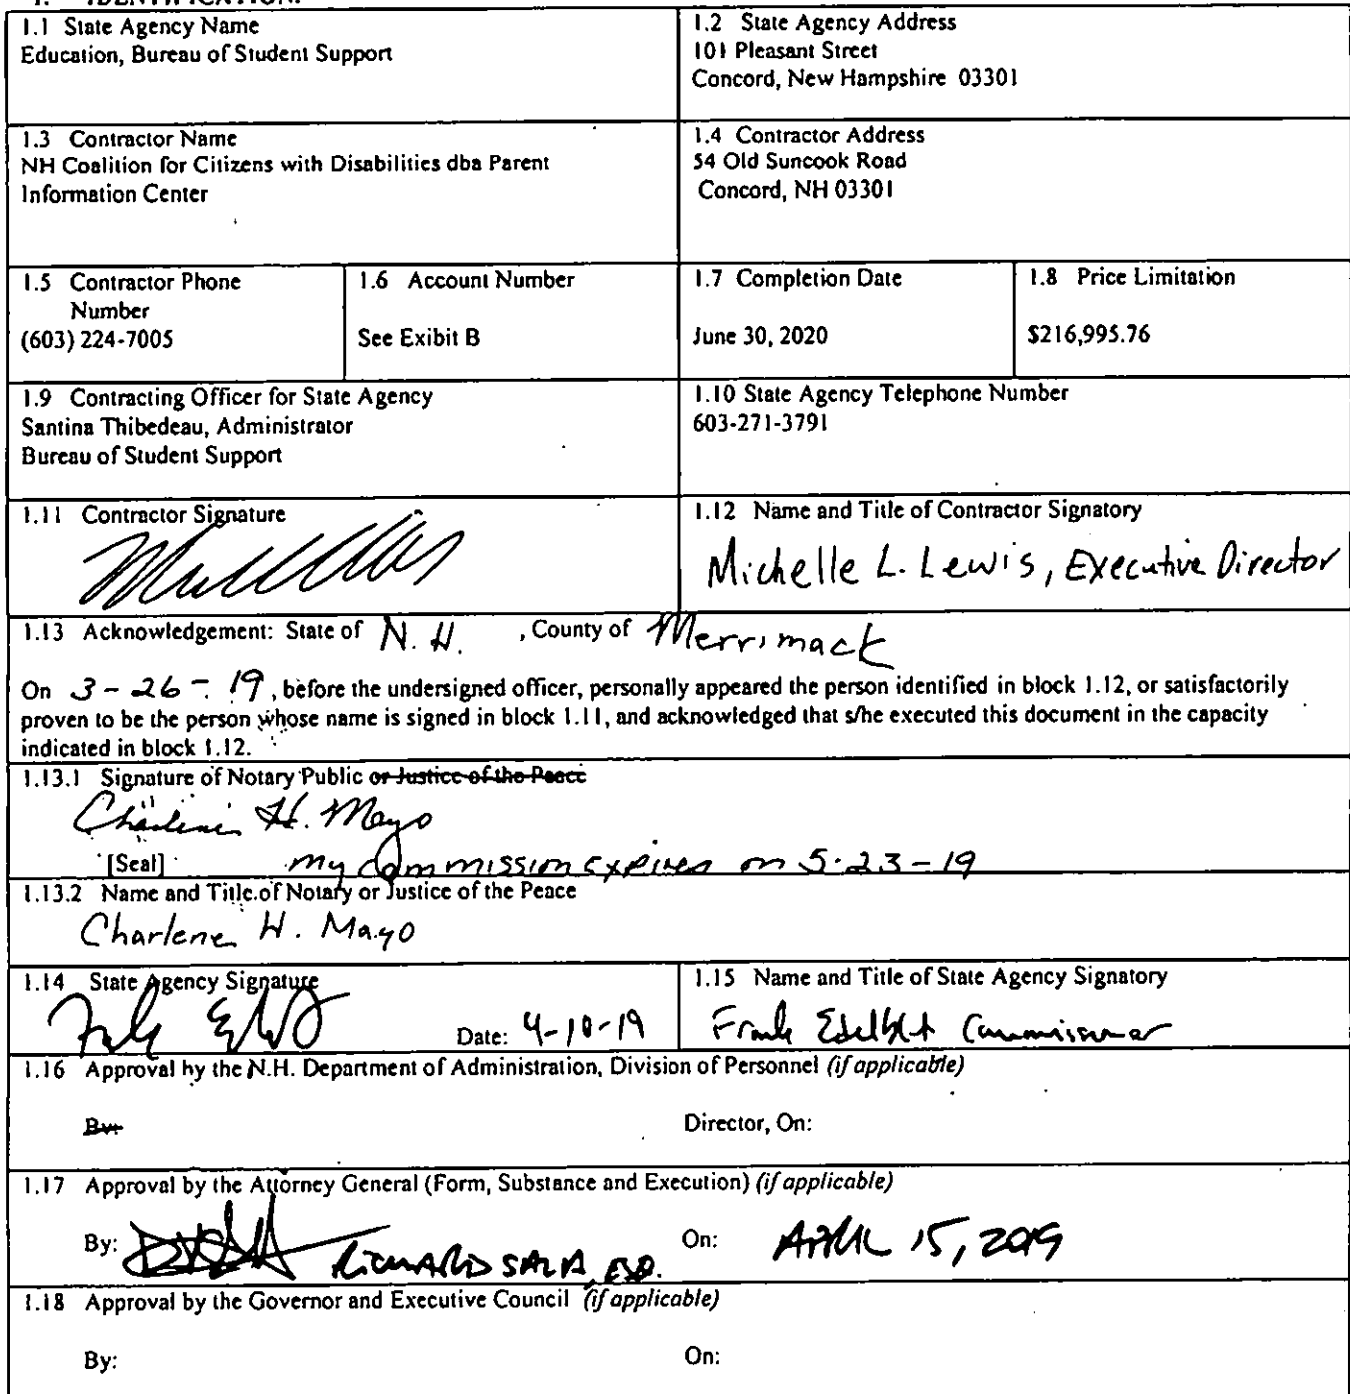 1. IDENTIFICATION.
1.1 State Agency Name
Education, Bureau of Student Support
1.2 State Agency Address
101 Pleasant Street
Concord, New Hampshire 03301
1.3 Contractor Name
NH Coalition for Citizens with Disabilities dba Parent
Information Center
1.4 Contractor Address
54 Old Suncook Road
Concord, NH 03301
1.5 Contractor Phone
Number
(603) 224-7005
1.6 Account Number
See Exibit B
1.7 Completion Date
June 30, 2020
1.8 Price Limitation
$216,995.76
1.9 Contracting Officer for State Agency
Santina Thibedeau, Administrator
Bureau of Student Support
1.10 State Agency Telephone Number
603-271-3791
1.11 Contractor Signature
1.12 Name and Title of Contractor Signatory
Michelle L. Lewis, Executive Director
1.13 Acknowledgement: State of N.H. , County of Merrimack
On 3-26-19, before the undersigned officer, personally appeared the person identified in block 1.12, or satisfactorily
proven to be the person whose name is signed in block 1.11, and acknowledged that s/he executed this document in the capacity
indicated in block 1.12.
1.13.1 Signature of Notary Public or Justice of the Peace
Charlene H. Mayo
[Seal] my commission expires on 5-23-19
1.13.2 Name and Title of Notary or Justice of the Peace
Charlene H. Mayo
1.14 State Agency Signature
Date: 4-10-19
1.15 Name and Title of State Agency Signatory
Frank Edelblut Commissioner
1.16 Approval by the N.H. Department of Administration, Division of Personnel (if applicable)
By: Director, On:
1.17 Approval by the Attorney General (Form, Substance and Execution) (if applicable)
By: RICHARD SALA, ESQ. On: APRIL 15, 2019
1.18 Approval by the Governor and Executive Council (if applicable)
By: On: